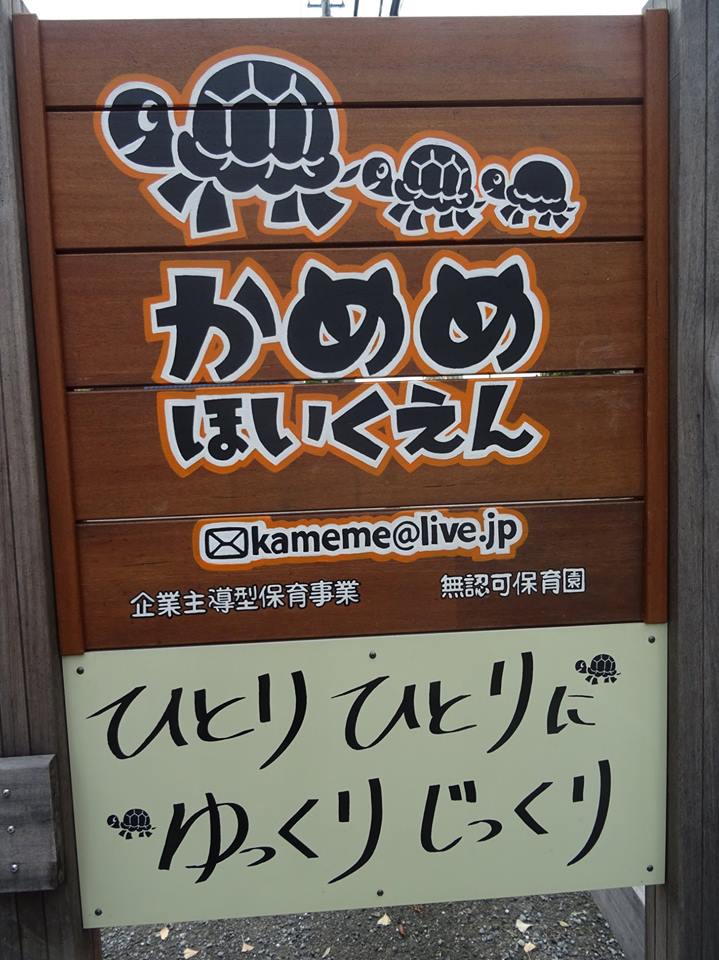 かめめ
ほいくえん
kameme@live.jp
企業主導型保育事業 無認可保育園
ひとりひとりに
ゆっくりじっくり